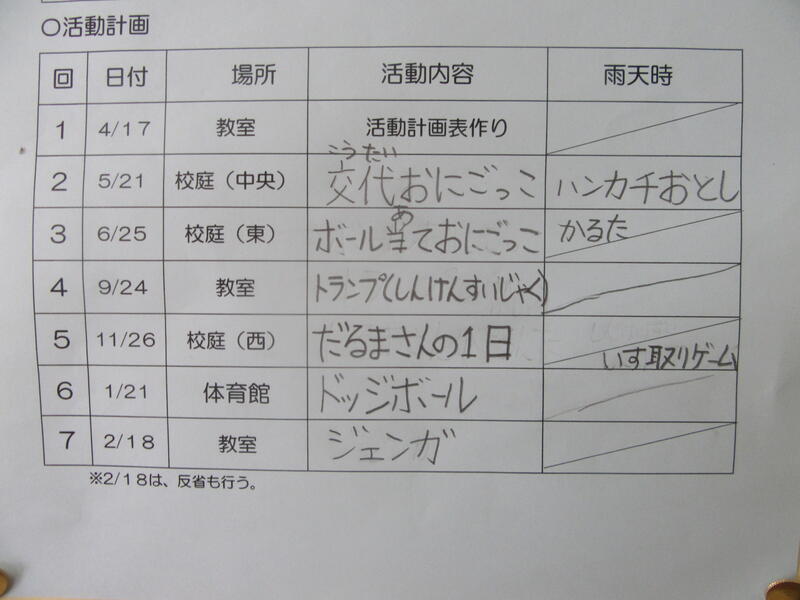 〇活動計画
回 日付 場所 活動内容 雨天時
1 4/17 教室 活動計画表作り
こうたい
2 5/21 校庭（中央） 交代おにごっこ ハンカチおとし
あ
3 6/25 校庭（東） ボール当ておにごっこ かるた
4 9/24 教室 トランプ(しんけんすいじゃく)
5 11/26 校庭（西） だるまさんの1日 いす取りゲーム
6 1/21 体育館 ドッジボール
7 2/18 教室 ジェンガ
※2/18は、反省も行う。